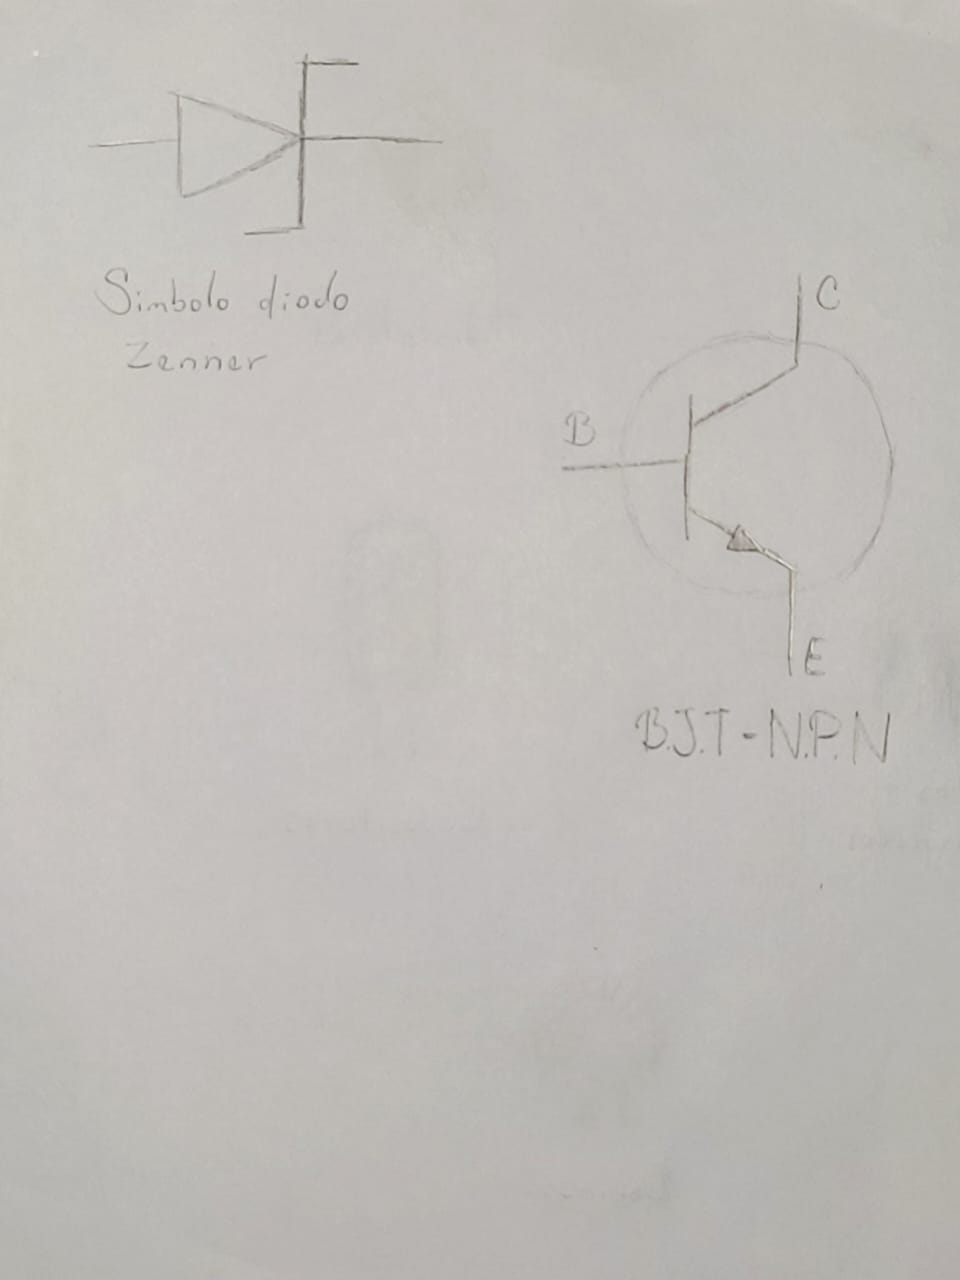 Simbolo diodo
Zenner
C
B
E
B.J.T-N.P.N